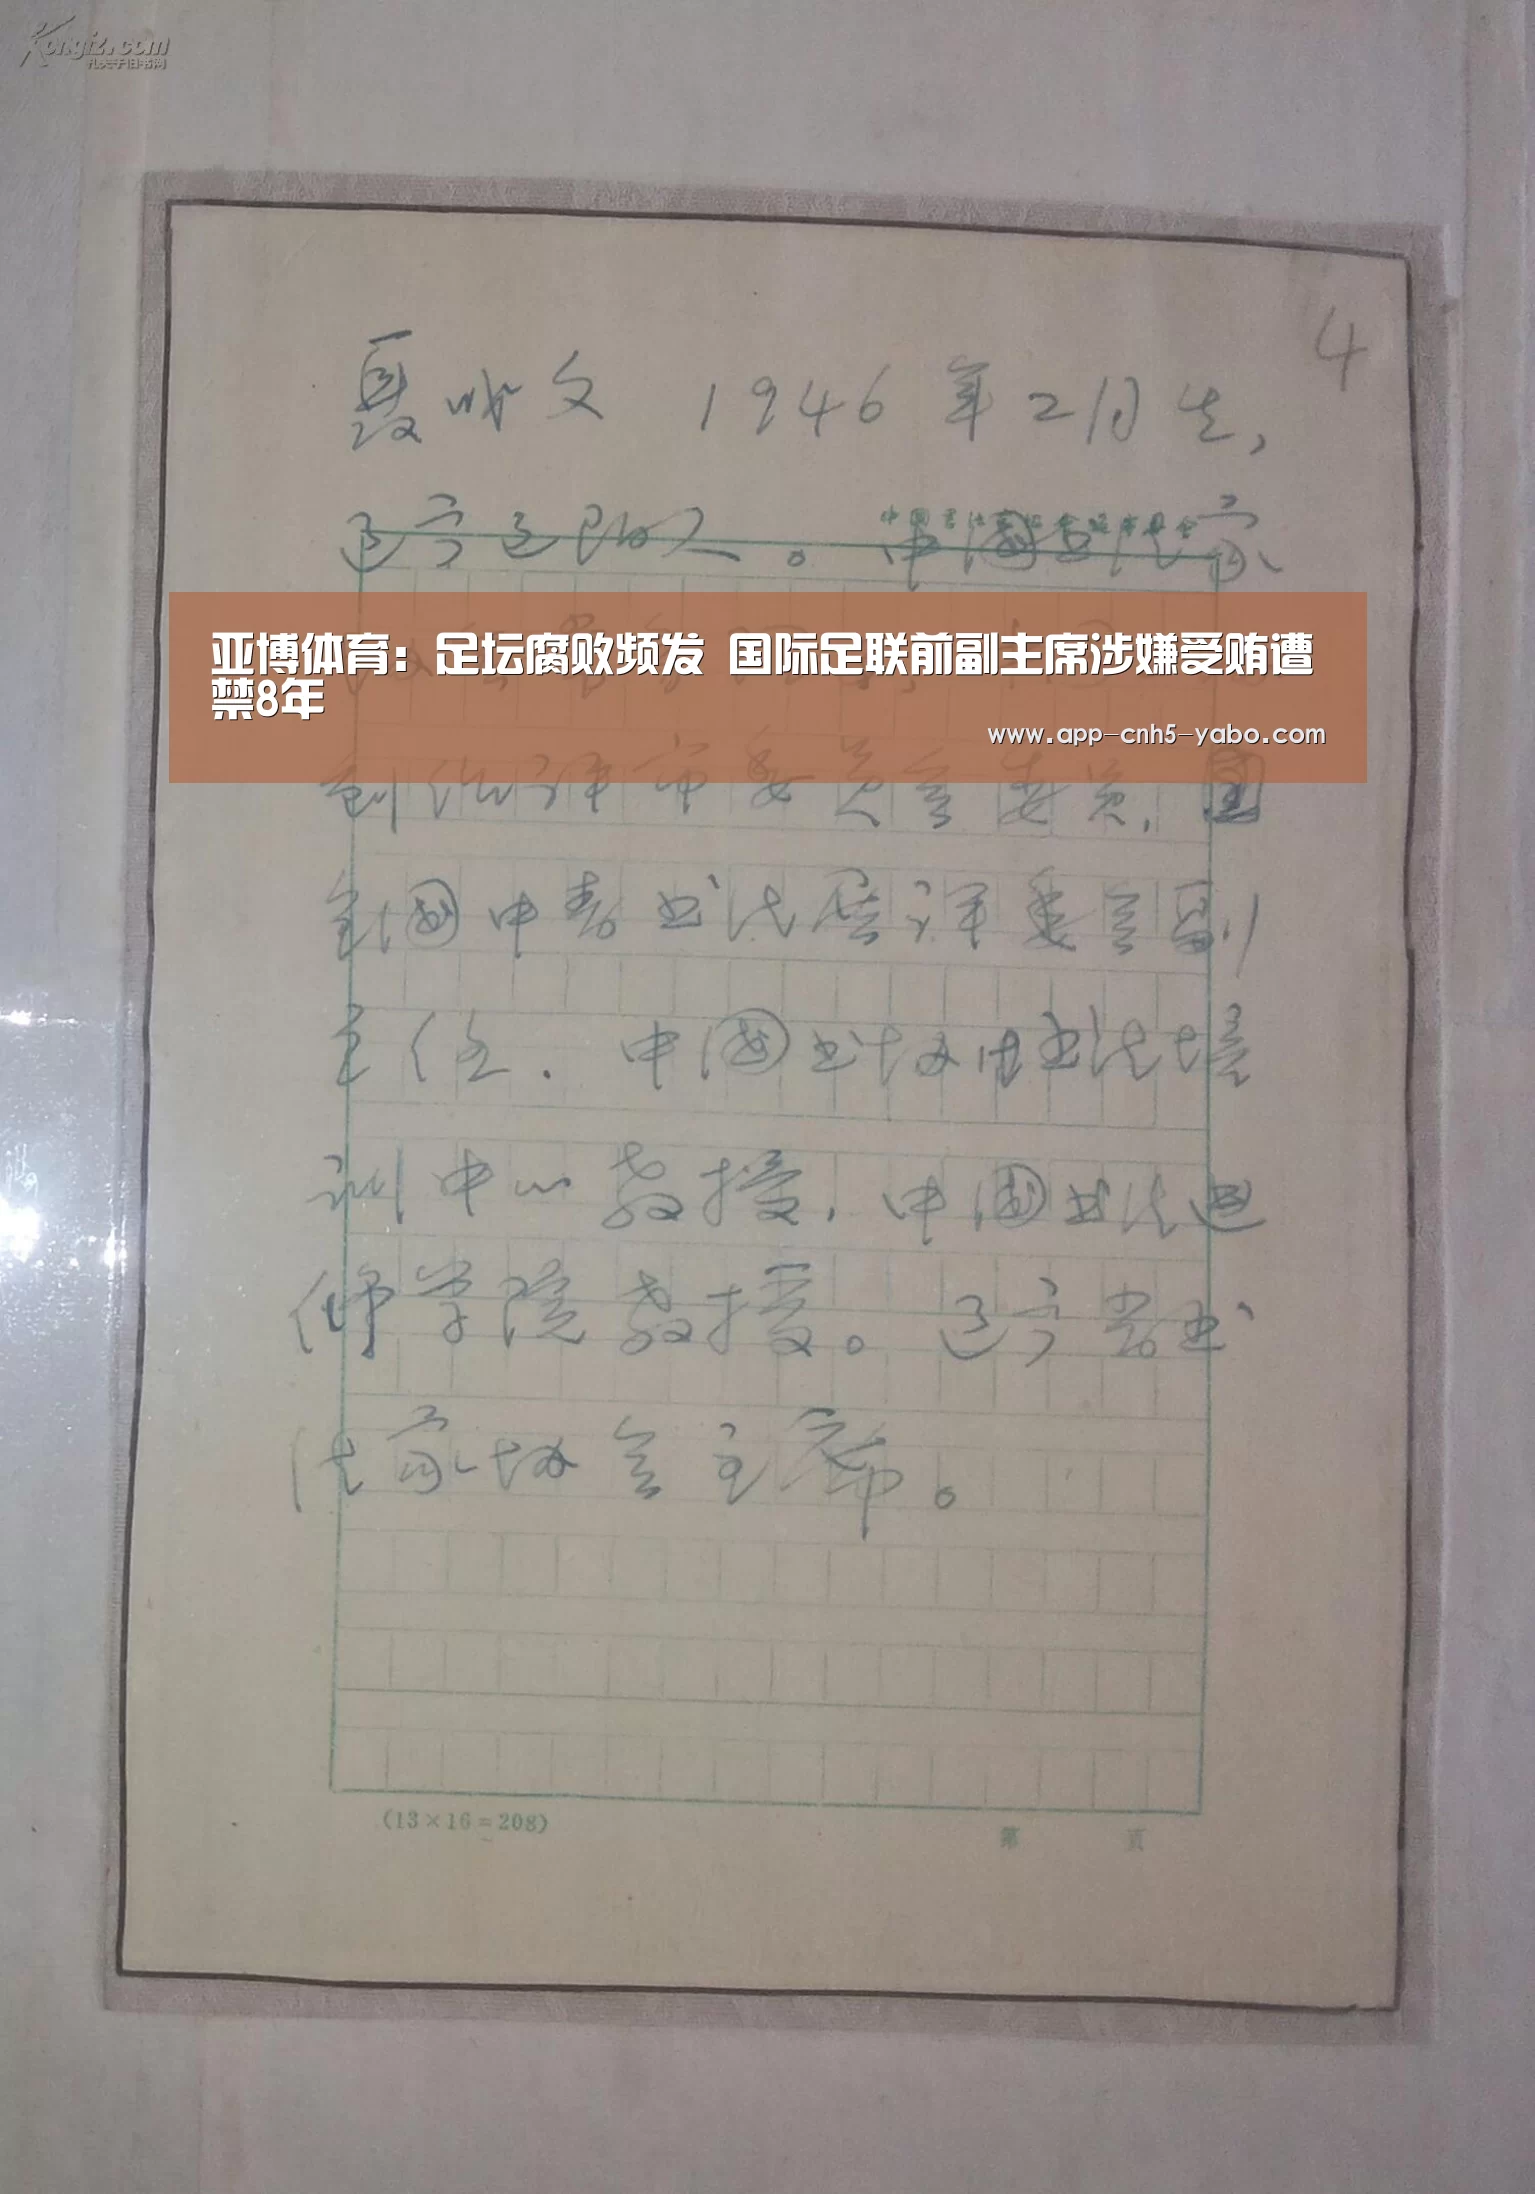 Kongfz.com
孔夫子旧书网
4
聂成文 1946年2月生,
辽宁辽阳人。中国书法家
亚博体育：足坛腐败频发 国际足联前副主席涉嫌受贿遭
禁8年
www.app-cnh5-yabo.com
创作评审委员会委员,
全国中青书法展评委会副
主任.中国书协书法培
训中心教授,中国书法进
修学院教授。辽宁省书
法家协会主席。
(13×16=208)
第 页